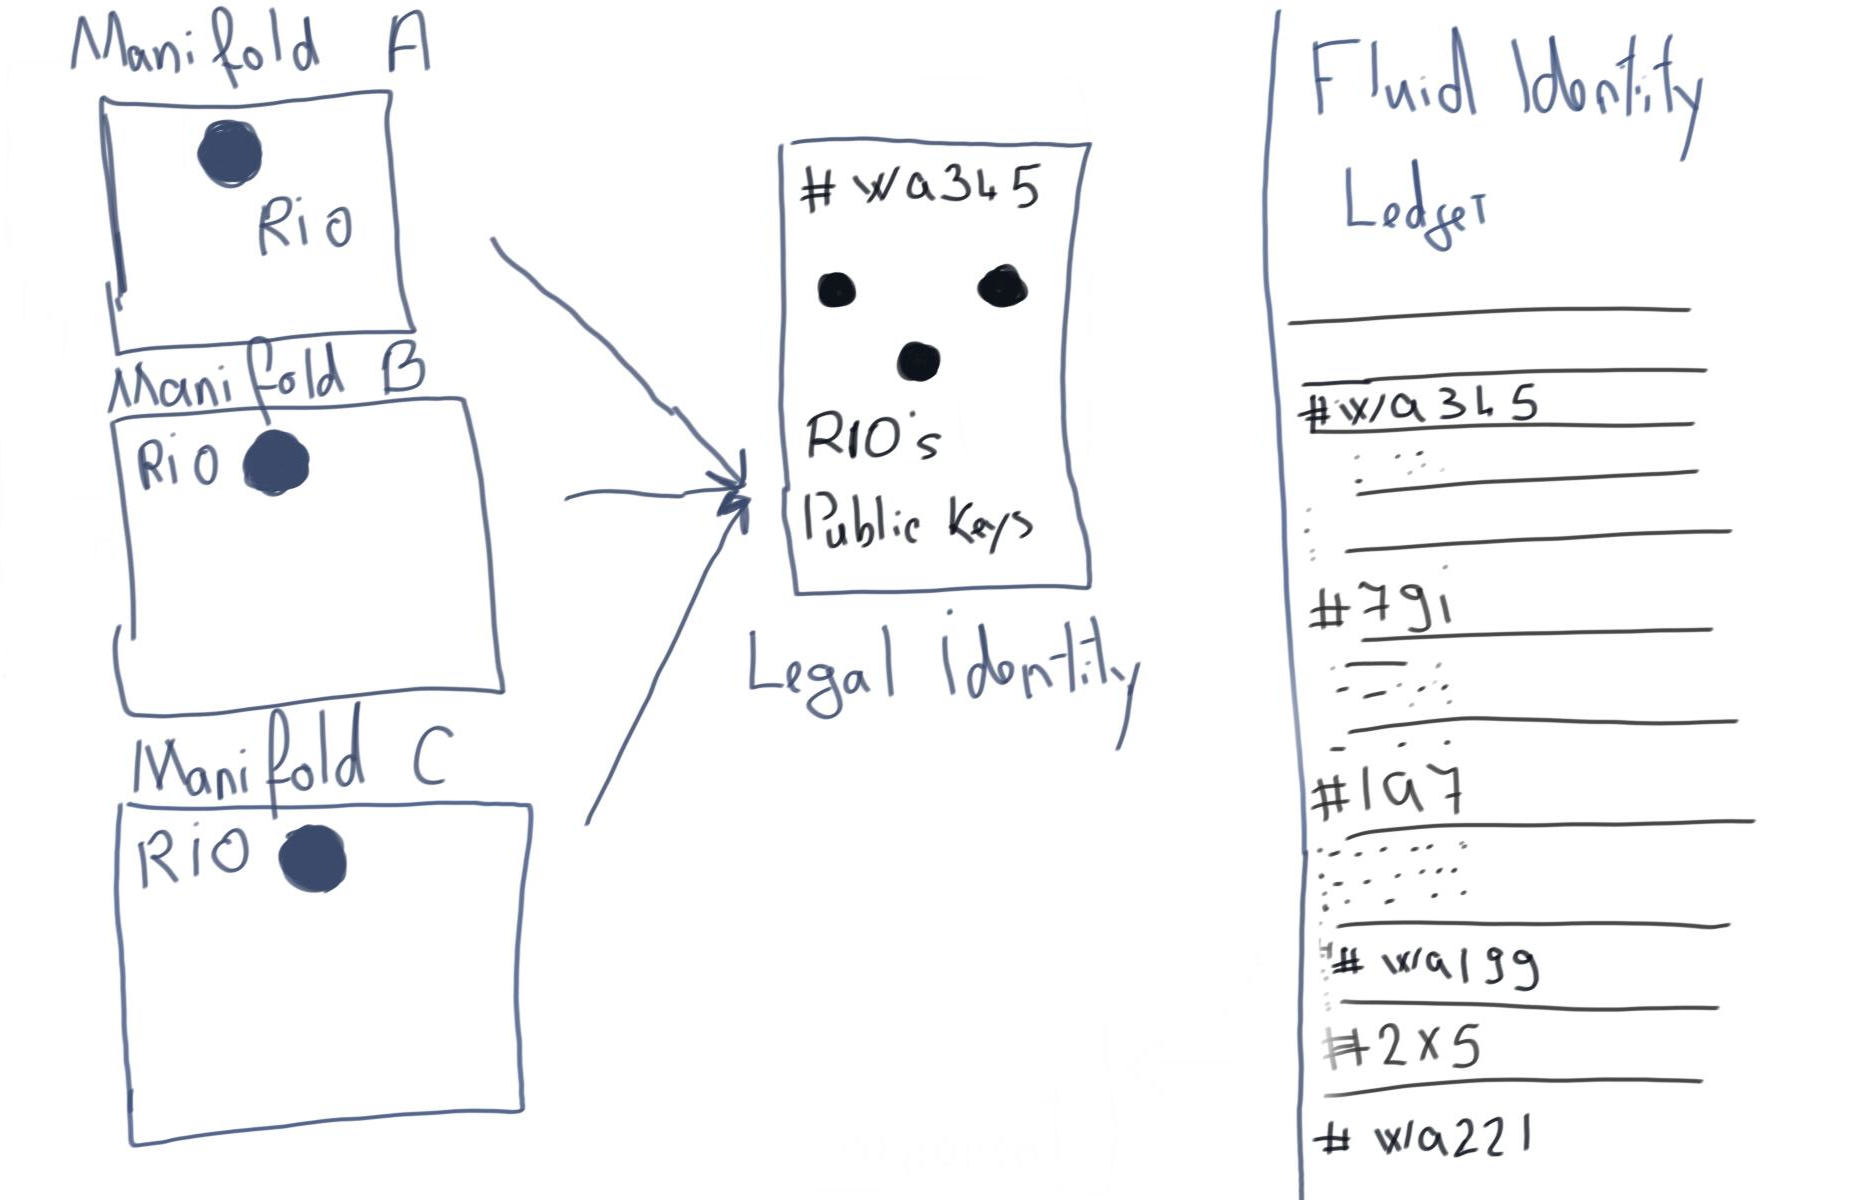 Manifold A
Rio
Manifold B
Rio
Manifold C
Rio
#wa345
RIO's
Public Keys
Legal identity
Fluid Identity
Ledger
#wa345
#791
#1a7
#wa199
#2x5
#wa221